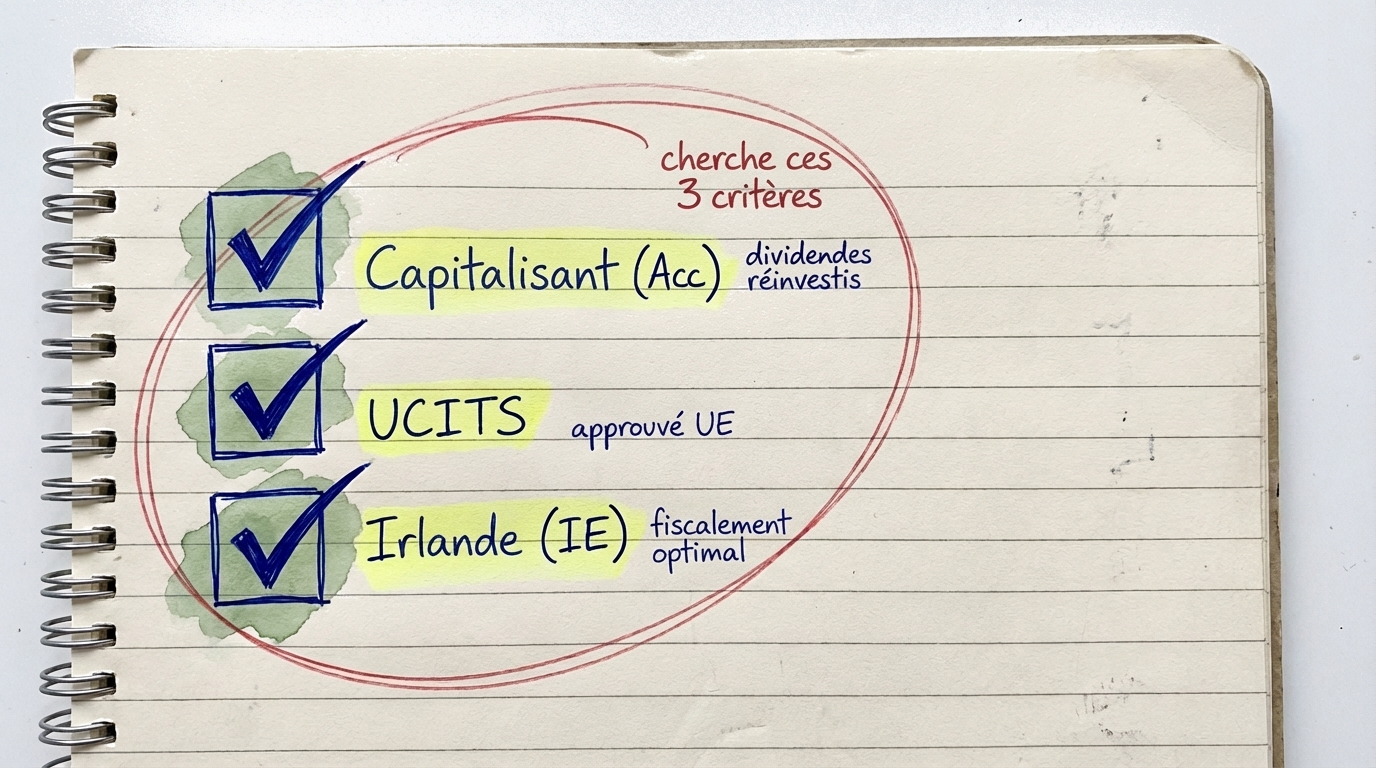 cherche ces
3 critères
Capitalisant (Acc)
dividendes
réinvestis
UCITS
approuvé UE
Irlande (IE)
fiscalement
optimal